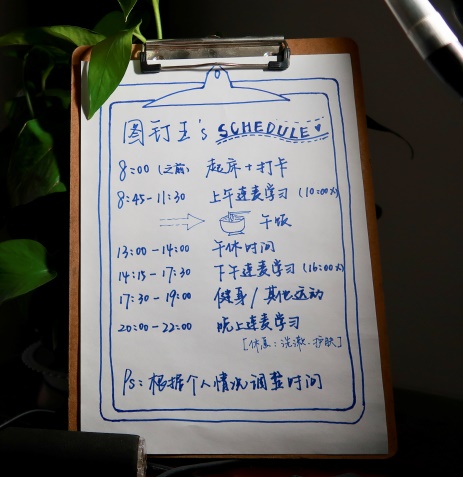 图钉王's SCHEDULE
8:00 (之前) 起床+打卡
8:45-11:30 上午连麦学习 (10:00火)
午饭
13:00-14:00 午休时间
14:15-17:30 下午连麦学习 (16:00火)
17:30-19:00 健身/其他运动
20:00-22:00 晚上连麦学习
[休息:洗漱·护肤]
Ps:根据个人情况调整时间